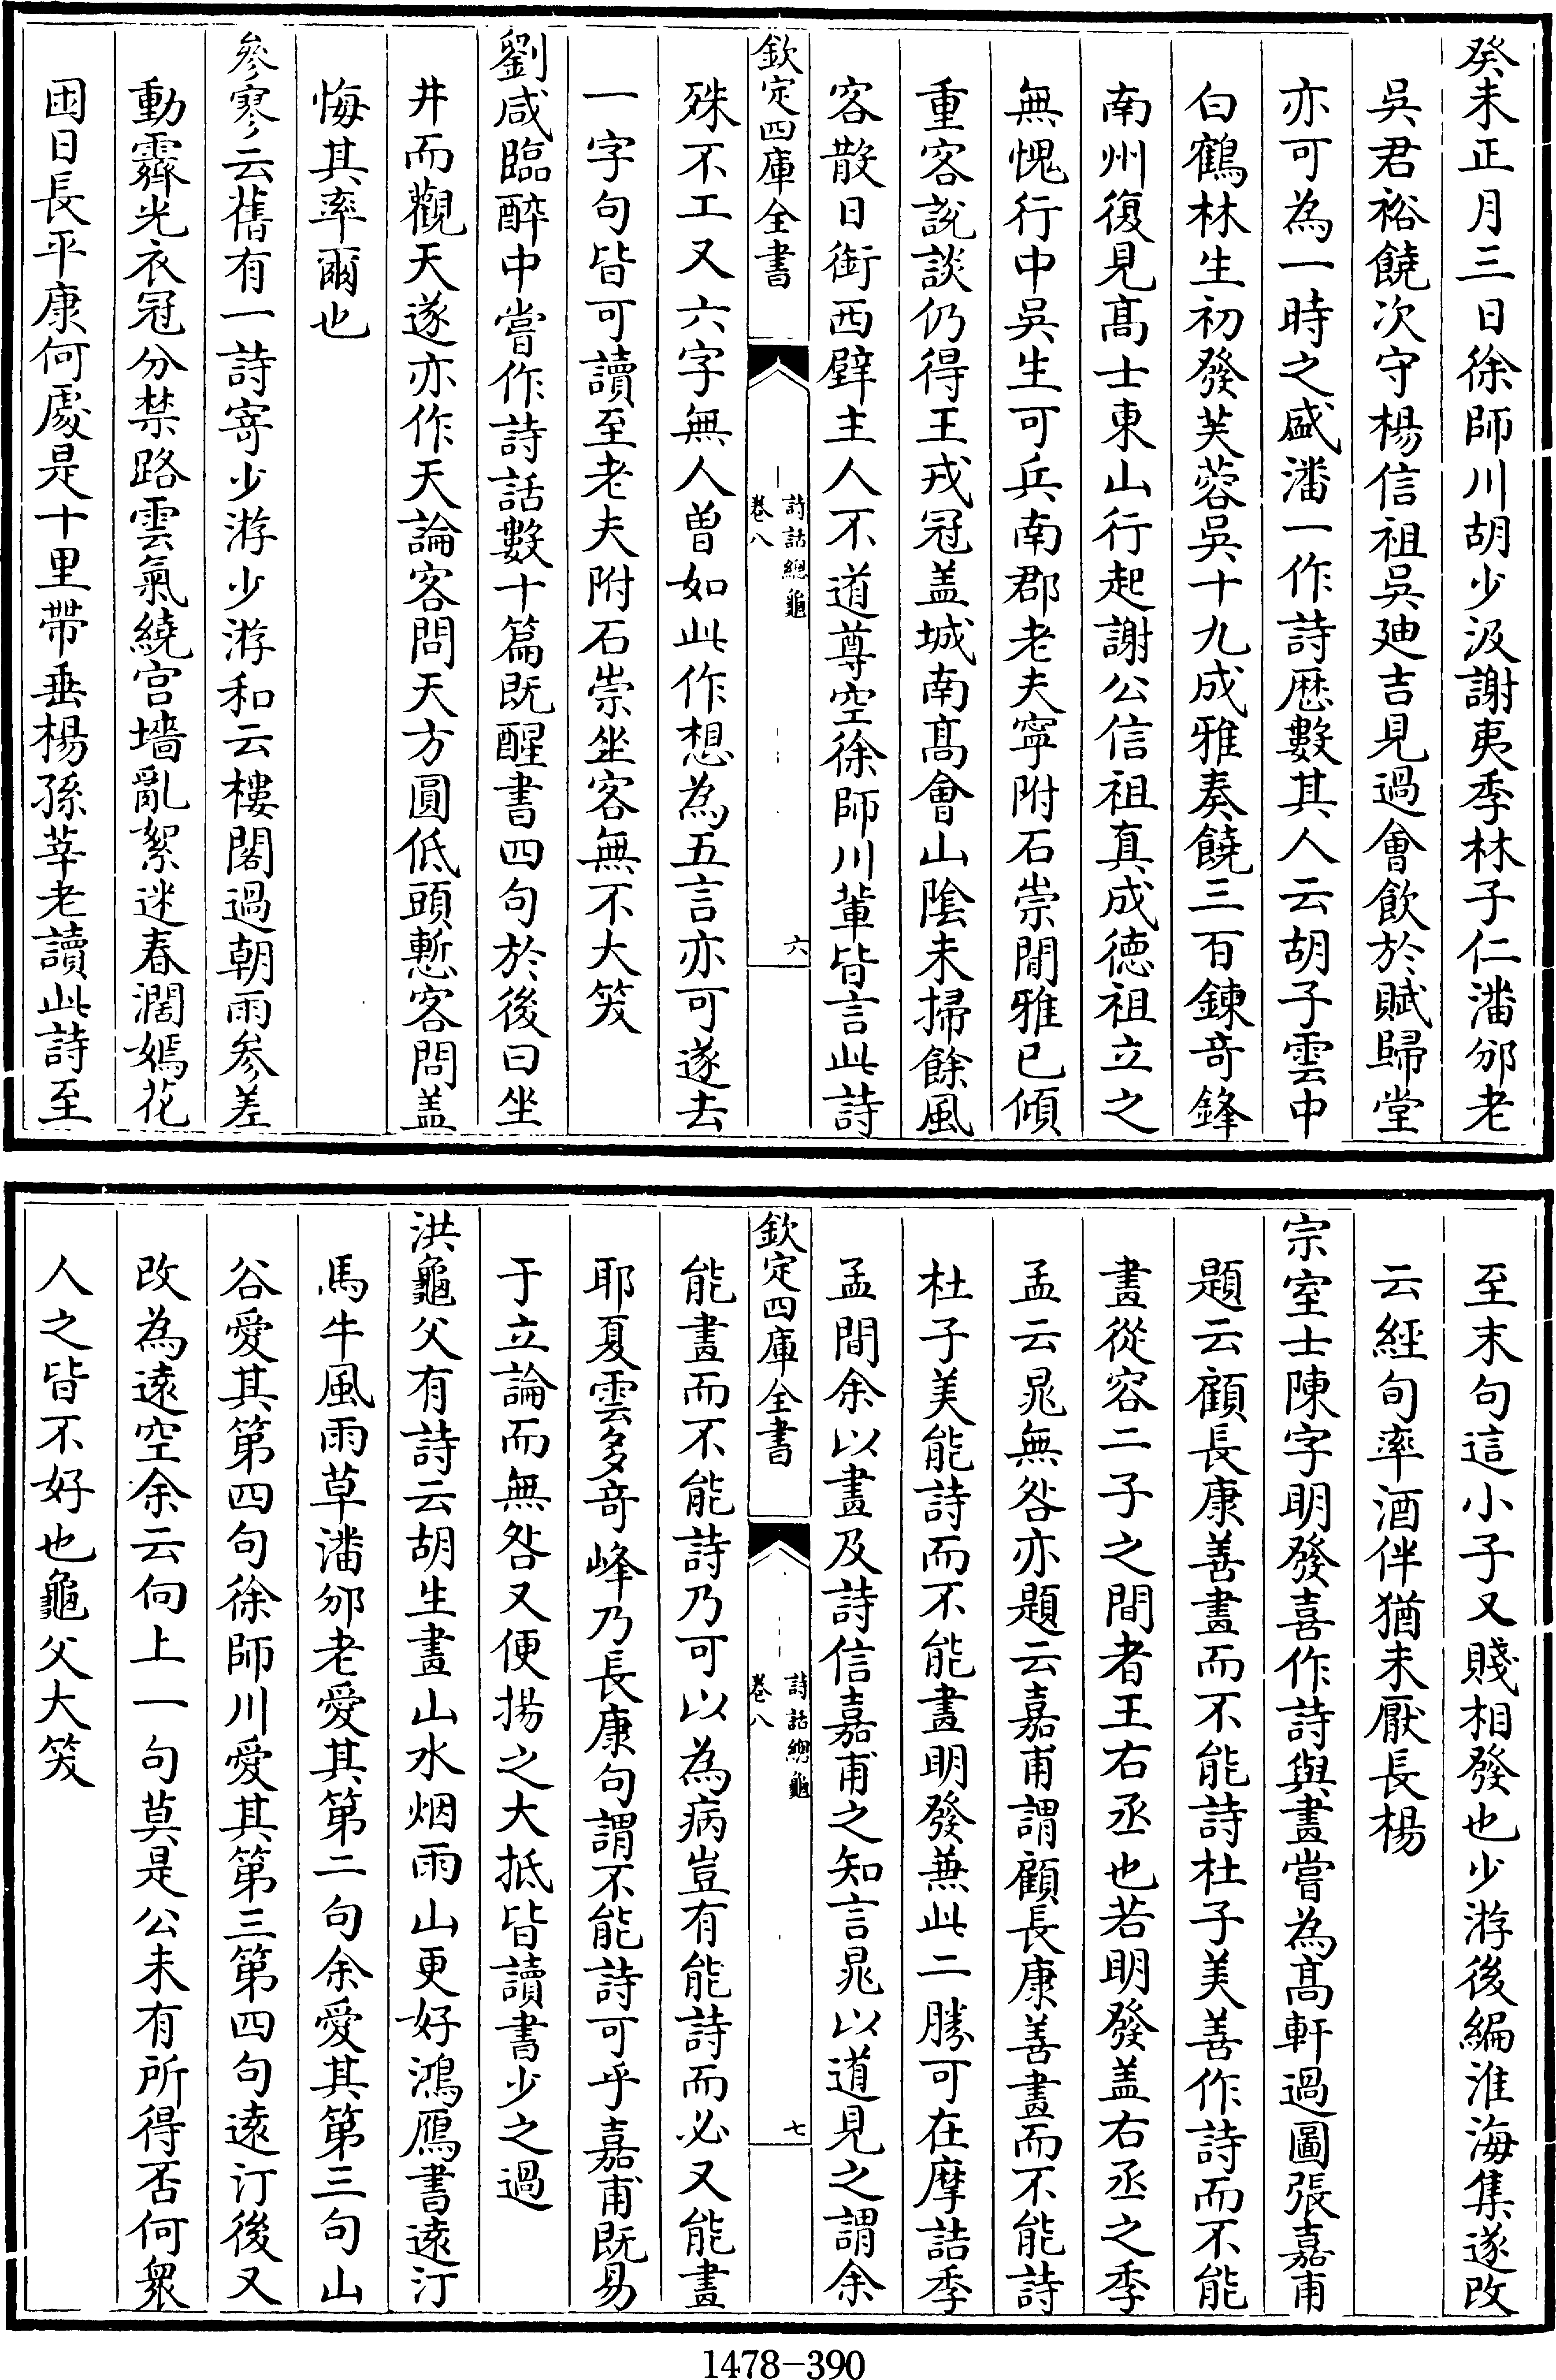 癸未正月三日徐師川胡少汲謝夷季林子仁潘邠老
吳君裕饒次守楊信祖吳廸吉見過會飲於賦歸堂
亦可為一時之盛潘一作詩歴數其人云胡子雲中
白鶴林生初發芙蓉吳十九成雅奏饒三百鍊奇鋒
南州復見髙士東山行起謝公信祖真成德祖立之
無愧行中吳生可兵南郡老夫寧附石崇閒雅已傾
重客說談仍得王戎冠盖城南髙會山隂未掃餘風
客散日銜西壁主人不道尊空徐師川軰皆言此詩
欽定四庫全書
詩話總龜
卷八
六
殊不工又六字無人曽如此作想為五言亦可遂去
一字句皆可讀至老夫附石崇坐客無不大笑
劉咸臨醉中嘗作詩話數十篇既醒書四句於後曰坐
井而觀天遂亦作天論客問天方圓低頭慙客問盖
悔其率爾也
參寥云舊有一詩寄少游少游和云樓閣過朝雨參差
動霽光衣冠分禁路雲氣繞宫墻亂絮迷春濶嫣花
困日長平康何處是十里帶垂楊孫莘老讀此詩至
至末句這小子又賤相發也少游後編淮海集遂改
云經旬率酒伴猶未厭長楊
宗室士陳字明發喜作詩與畫嘗為髙軒過圖張嘉甫
題云顧長康善畫而不能詩杜子美善作詩而不能
畫從容二子之間者王右丞也若明發盖右丞之季
孟云晁無咎亦題云嘉甫謂顧長康善畫而不能詩
杜子美能詩而不能畫明發兼此二勝可在摩詰季
孟間余以畫及詩信嘉甫之知言晁以道見之謂余
欽定四庫全書
詩話總龜
卷八
七
能畫而不能詩乃可以為病豈有能詩而必又能畫
耶夏雲多奇峰乃長康句謂不能詩可乎嘉甫既易
于立論而無咎又便揚之大抵皆讀書少之過
洪龜父有詩云胡生畫山水烟雨山更好鴻鴈書遠汀
馬牛風雨草潘邠老愛其第二句余愛其第三句山
谷愛其第四句徐師川愛其第三第四句遠汀後又
改為遠空余云向上一句莫是公未有所得否何衆
人之皆不好也龜父大笑
1478-390